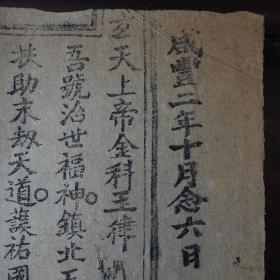 咸豐二年十月念六日
玄天上帝金科玉律
吾號治世福神鎮北
扶助末劫天道護祐國